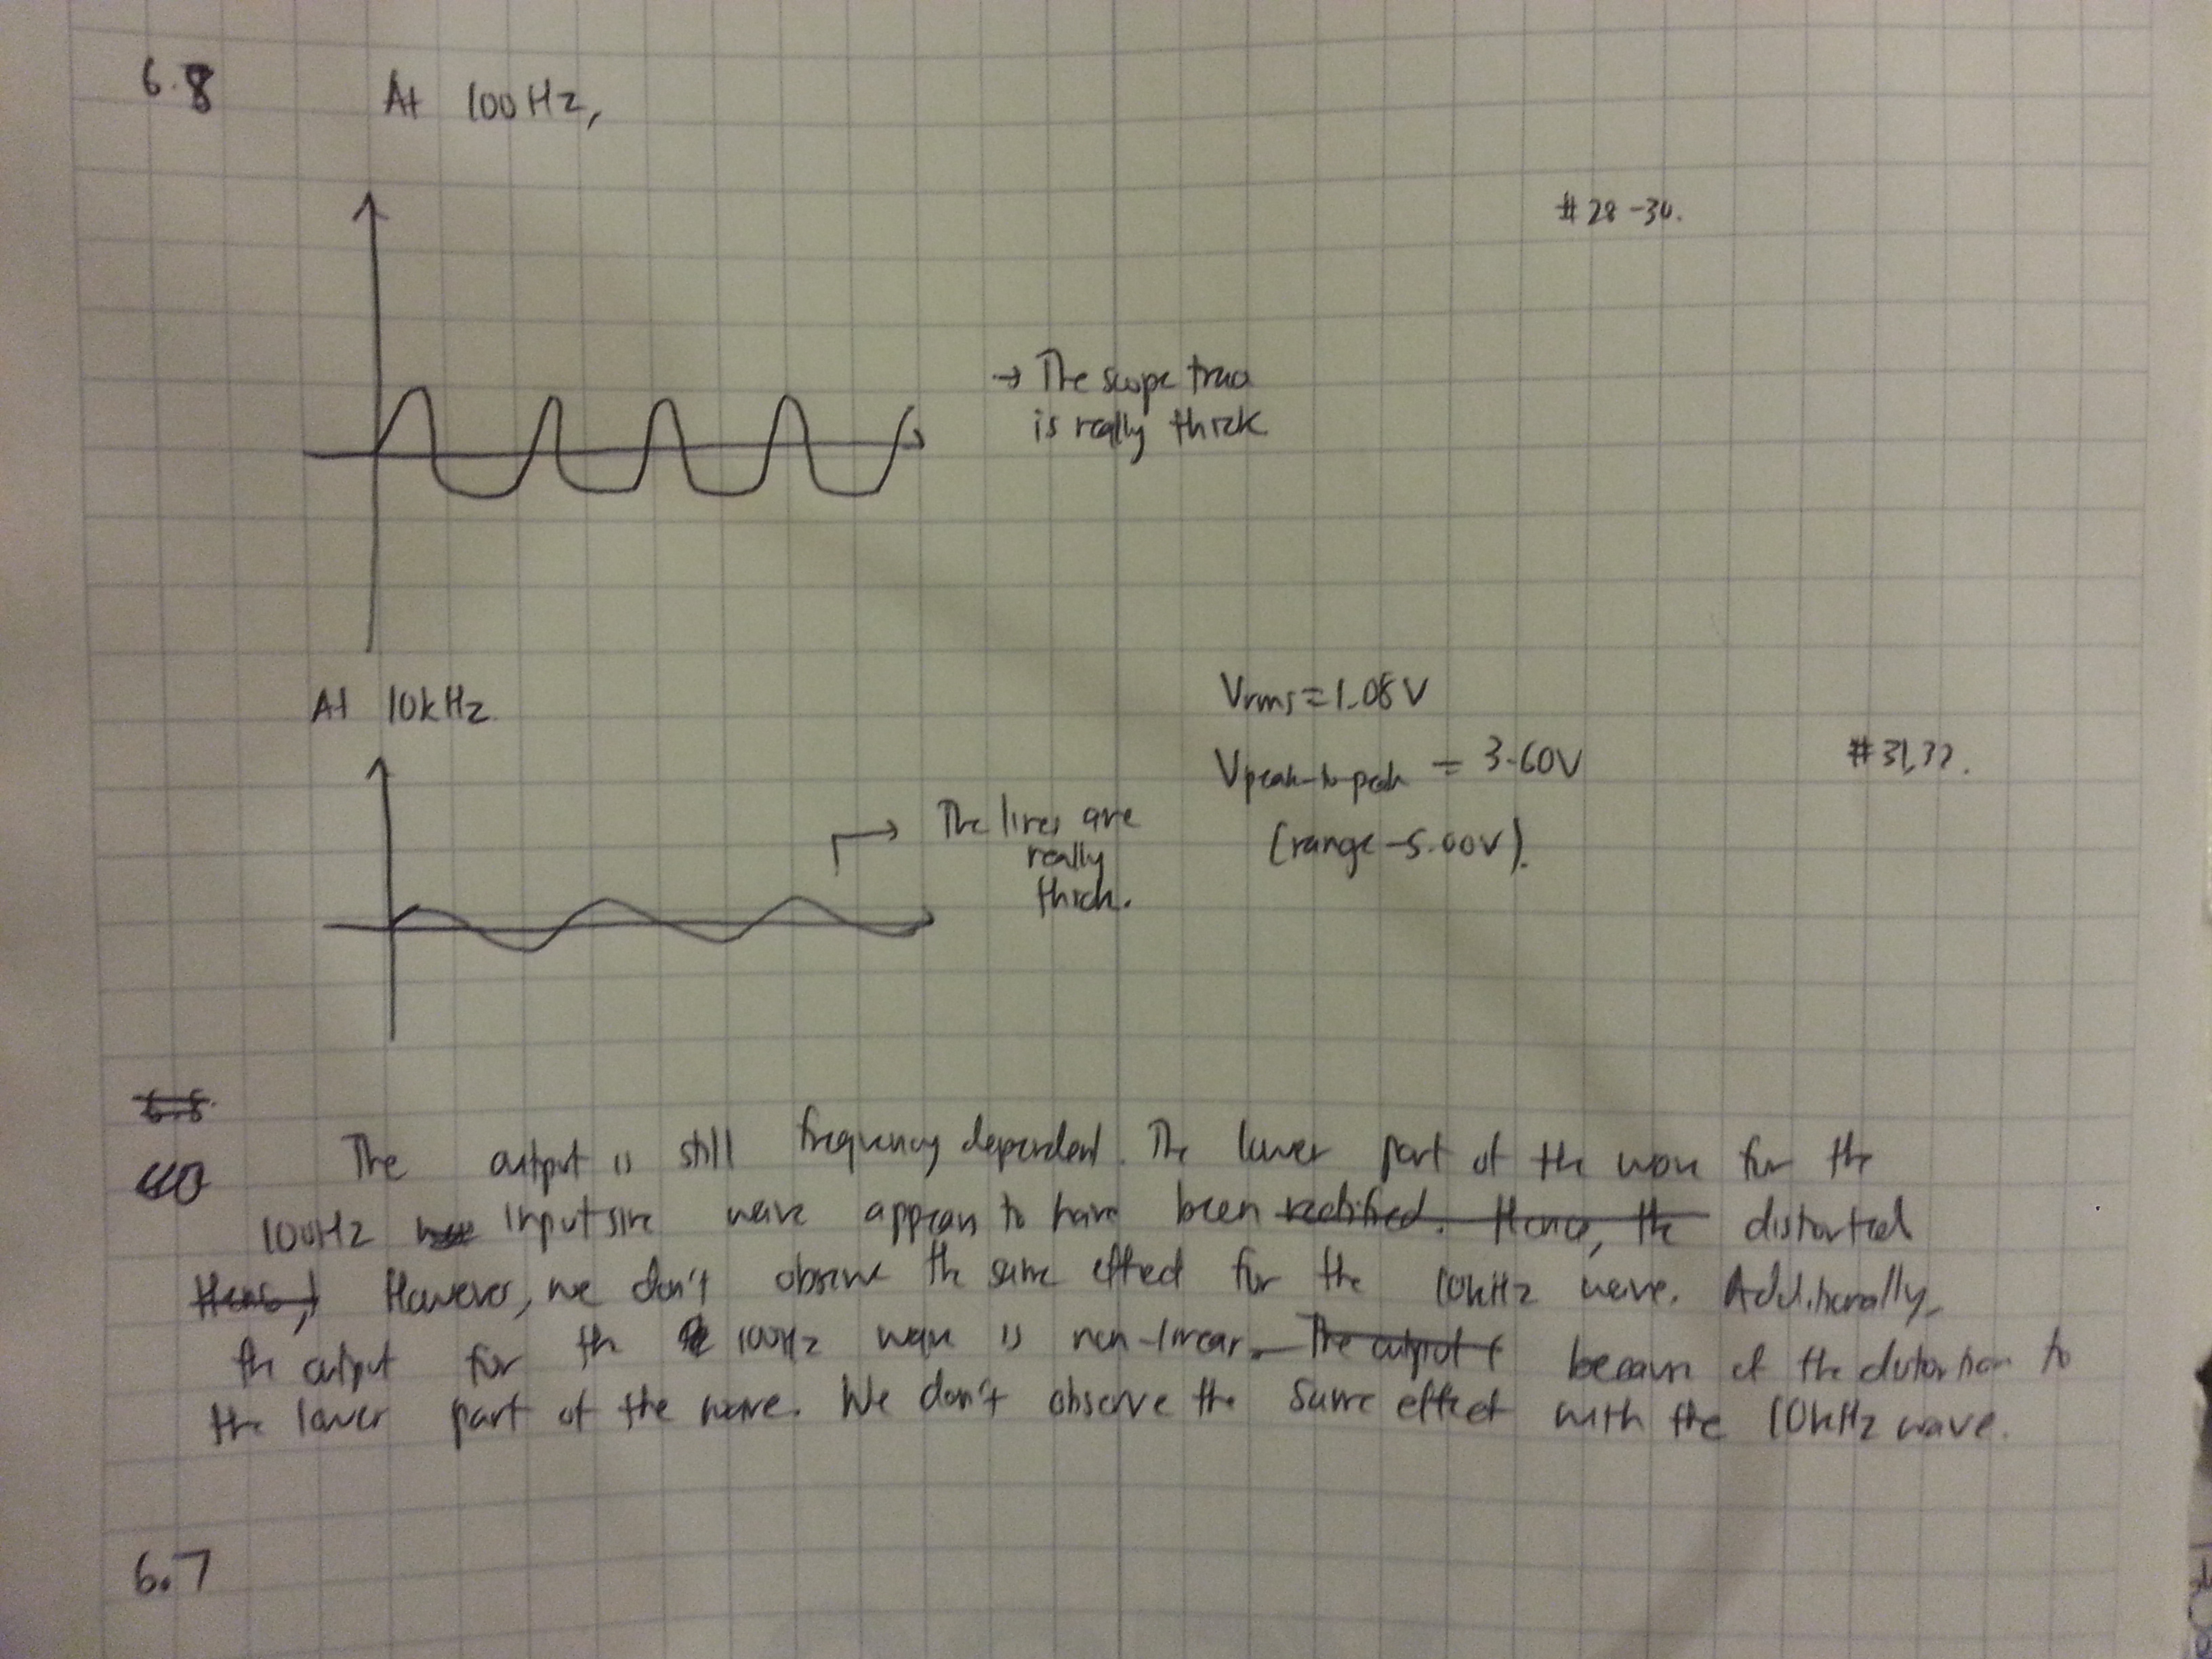 6.8 At 100Hz,
#28-30.
→ The scope trace
is really thick
At 10kHz.
Vrms=1.08V
Vpeak-to-peak = 3.60V
(range-5.00V).
#31,32.
The lines are
really
thick.
6.8.
The output is still frequency dependent. The lower part of the wave for the
100Hz input sine wave appears to have been rectified. Hence, the distorted
Hence, However, we don't observe the same effect for the 10kHz wave. Additionally,
the output for the 100Hz wave is non-linear. The output because of the distortion to
the lower part of the wave. We don't observe the same effect with the 10kHz wave.
6.7